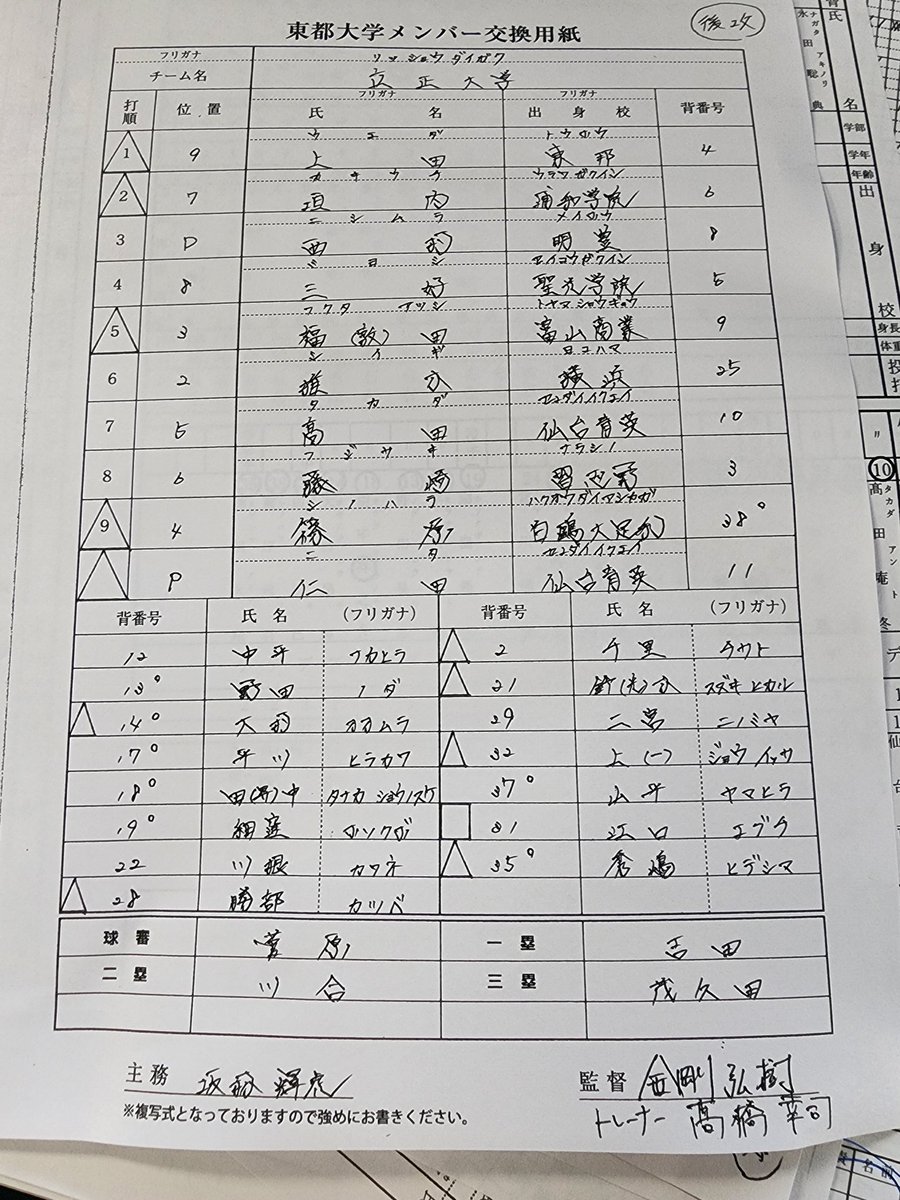 東都大学メンバー交換用紙
後攻
フリガナ リッショウダイガク
チーム名 立正大学
打順 位置 フリガナ 氏名 フリガナ 出身校 背番号
ウエダ トウホウ
1 9 上田 東邦 4
カキウチ ウラワガクイン
2 7 垣内 浦和学院 6
ニシムラ メイホウ
3 D 西村 明豊 8
ミヨシ セイコウガクイン
4 8 三好 聖光学院 5
フクダ アツシ トヤマショウギョウ
5 3 福(敦)田 富山商業 9
シイギ ヨコハマ
6 2 椎木 横浜 25
タカダ センダイイクエイ
7 5 高田 仙台育英 10
フジサキ ナラシノ
8 6 藤崎 習志野 3
シノハラ ハクオウダイアシカガ
9 4 篠原 白鷗大足利 38°
ニタ センダイイクエイ
P 仁田 仙台育英 11
背番号 氏名 (フリガナ) 背番号 氏名 (フリガナ)
12 中平 ナカヒラ 2 千里
13° 野田 ノダ 21 鈴(光)木 スズキ ヒカル
14° 大村 オオムラ 29 二宮 ニノミヤ
17° 平川 ヒラカワ 32 上(一) ジョウ イッサ
18° 田(将)中 タナカ ショウノスケ 37° 山平 ヤマヒラ
19° 細窪 ホソクボ 31 江口 エグチ
22 川根 カワネ 35° 秀嶋 ヒデシマ
28 勝部 カツベ
球審 菅原 一塁 吉田
二塁 川合 三塁 茂久田
主務 監督 金剛弘樹
※複写式となっておりますので強めにお書きください。
トレーナー 高橋幸司